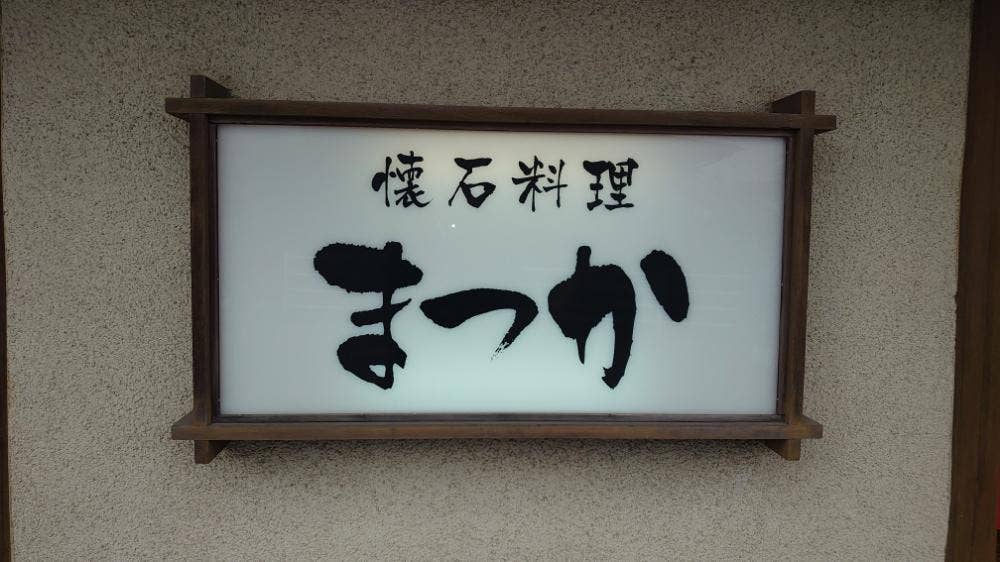 懐石料理
まつか